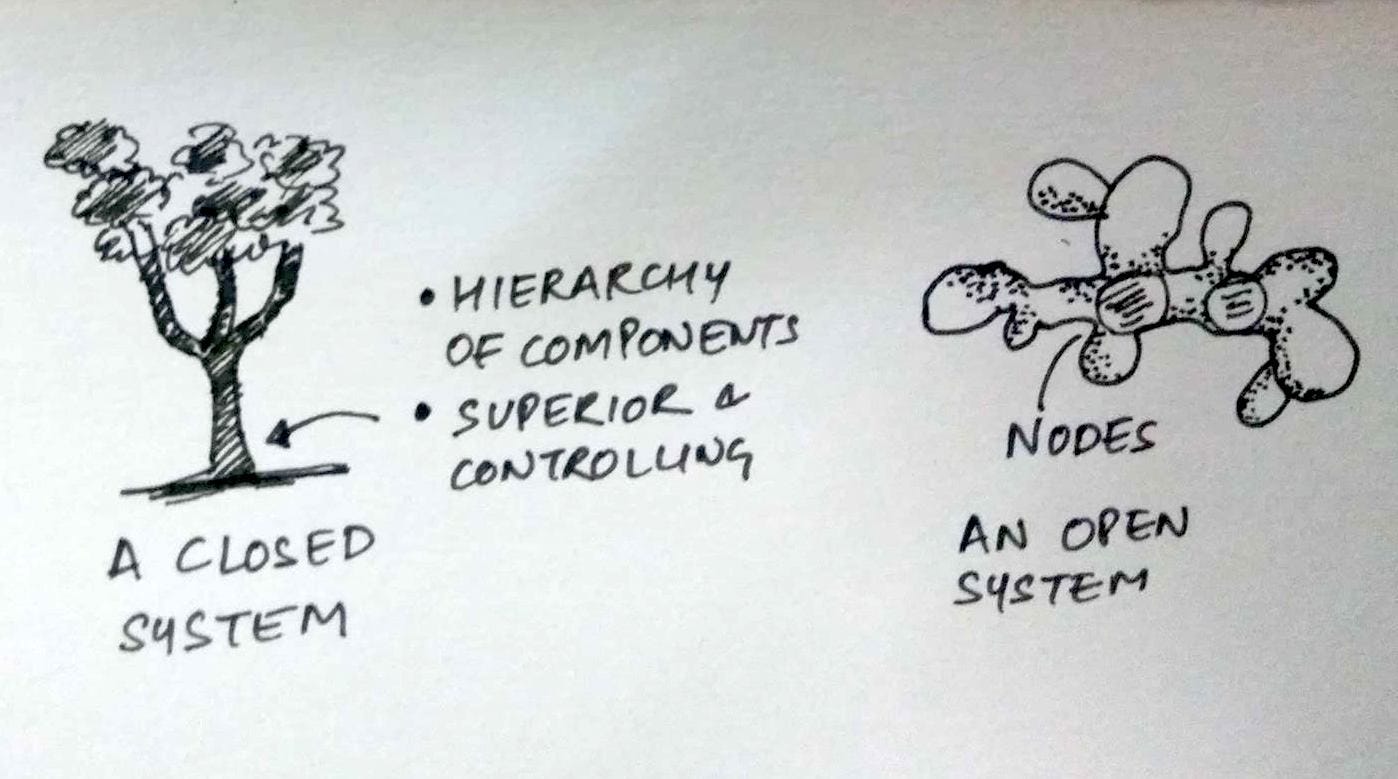 • HIERARCHY
OF COMPONENTS
• SUPERIOR &
CONTROLLING
A CLOSED
SYSTEM
NODES
AN OPEN
SYSTEM